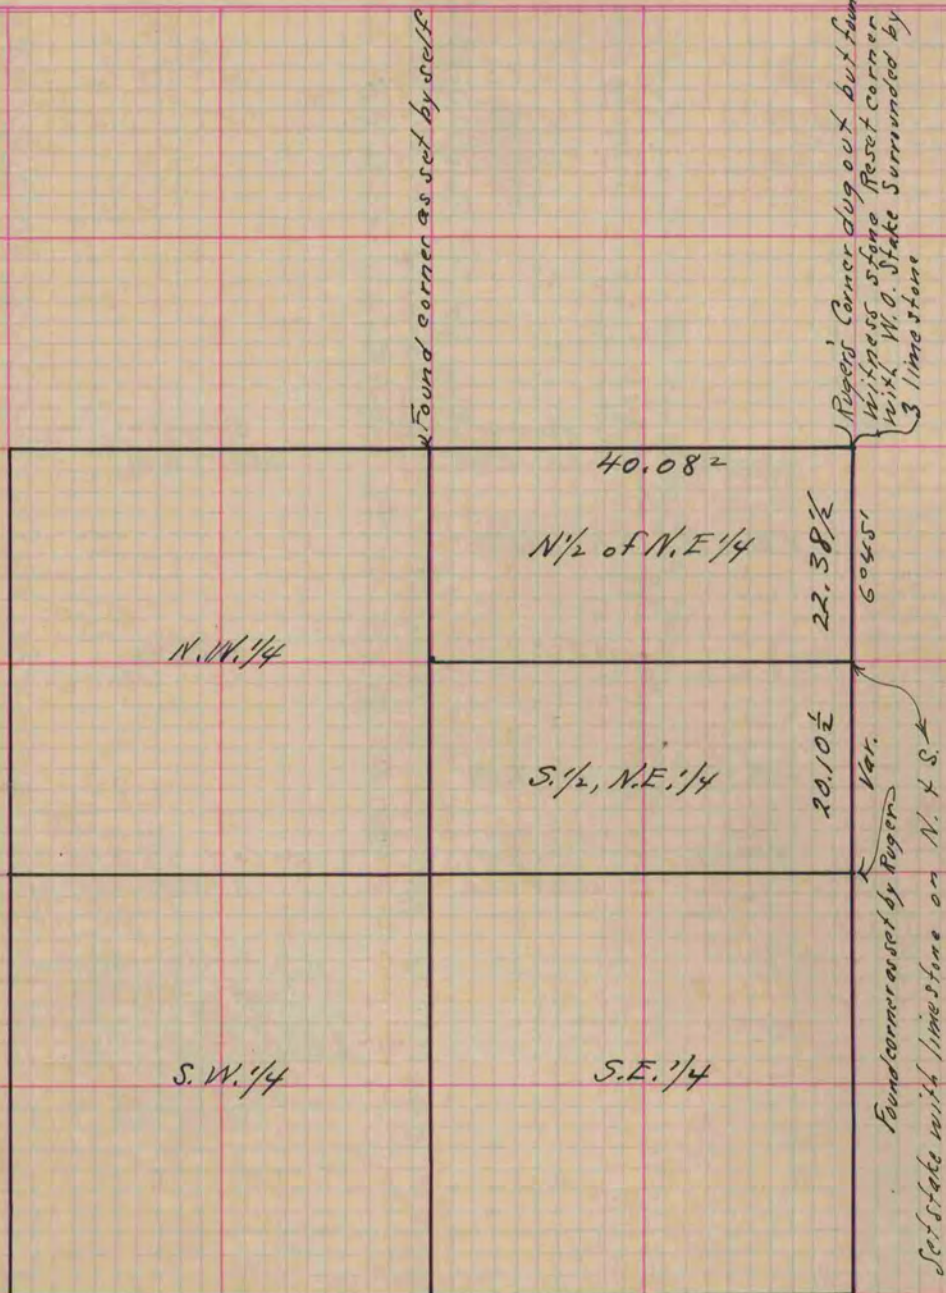 Found corner as set by self
Ruger's Corner dug out but found
Witness stone Reset corner
with W.O. Stake Surrounded by
3 limestone
40.08²
N1/2 of N.E1/4
22.38½
6°45'
N.W.1/4
S.1/2, N.E.1/4
20.10½
Var.
Found corner as set by Ruger
Set stake with limestone on N. & S.
S.W.1/4
S.E.1/4